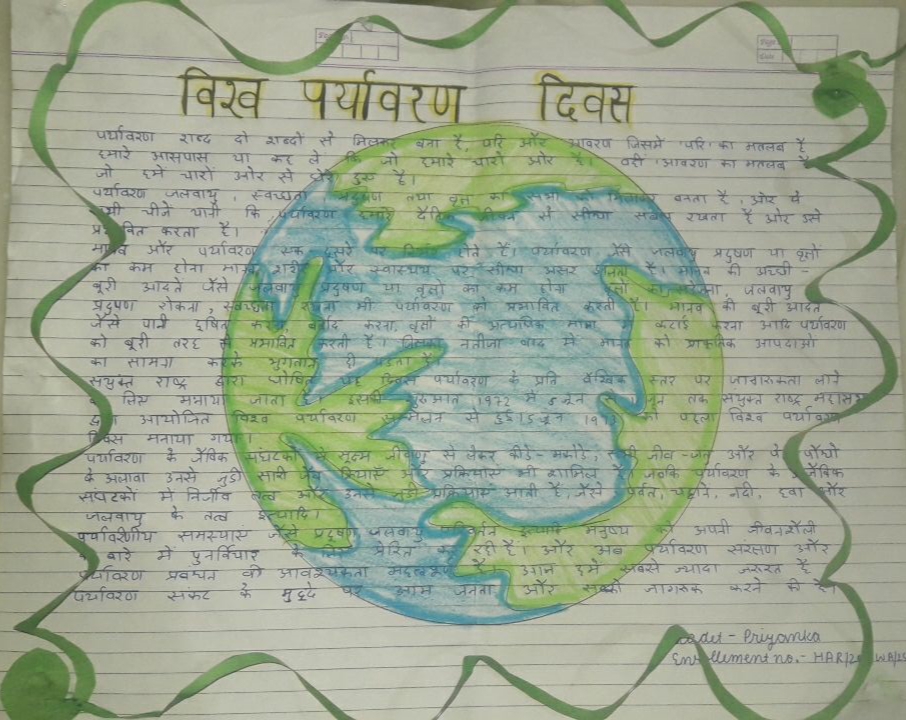 विश्व पर्यावरण दिवस
पर्यावरण शब्द दो शब्दों से मिलकर बना है, परि और आवरण जिसमें 'परि' का मतलब है
हमारे आसपास या कह लें कि जो हमारे चारों ओर है। वहीं 'आवरण' का मतलब है
जो हमें चारों ओर से घेरे हुए है।
पर्यावरण जलवायु, स्वच्छता, प्रदूषण तथा वृक्षों का सभी को मिलाकर बनता है, और ये
सभी चीजें यानी कि पर्यावरण हमारे दैनिक जीवन से सीधा संबंध रखता है और उसे
प्रभावित करता है।
मानव और पर्यावरण एक दूसरे पर निर्भर होते हैं। पर्यावरण जैसे जलवायु प्रदूषण या वृक्षों
का कम होना मानव शरीर और स्वास्थय पर सीधा असर डालता है। मानव की अच्छी -
बूरी आदतें जैसे जलवायु प्रदूषण या वृक्षों का कम होना जलवायु
प्रदूषण रोकना, स्वच्छता रखना भी पर्यावरण को प्रभावित करती है। मानव की बूरी आदतें
जैसे पानी दूषित करना, बर्बाद करना, वृक्षों की अत्यधिक मात्रा में कटाई करना आदि पर्यावरण
को बूरी तरह से प्रभावित करती है। जिसका नतीजा बाद में मानव को प्राकृतिक आपदाओं
का सामना करके भुगतना ही पड़ता है
संयुक्त राष्ट्र द्वारा घोषित यह दिवस पर्यावरण के प्रति वैश्विक स्तर पर जागरूकता लाने
के लिए मनाया जाता है। इसकी शुरुआत 1972 में 5 जून से जून तक संयुक्त राष्ट्र महासभा
द्वारा आयोजित विश्व पर्यावरण सम्मेलन से हुई। 5 जून को पहला विश्व पर्यावरण
दिवस मनाया गया।
पर्यावरण के जैविक संघटकों में सूक्ष्म जीवाणु से लेकर कीड़े - मकोड़े, सभी जीव - जंतु और पेड़ पौधों
के अलावा उनसे जुड़ी सारी जैव क्रियाएँ और प्रक्रियाएं भी शामिल हैं जबकि पर्यावरण के अजैविक
संघटकों में निर्जीव तत्व और उनसे जुड़ी प्रक्रियाएं आती हैं, जैसे पर्वत, चट्टानें, नदी, हवा और
जलवायु के तत्व इत्यादि।
पर्यावरणीय समस्याएं जैसे प्रदूषण, जलवायु परिवर्तन इत्यादि मनुष्य को अपनी जीवनशैली
के बारे में पुनर्विचार के लिए प्रेरित कर रही हैं। और अब पर्यावरण संरक्षण और
पर्यावरण प्रबंधन की आवश्यकता महत्वपूर्ण है। आज हमें सबसे ज्यादा जरूरत है
पर्यावरण संकट के मुद्दे पर आम जनता और सबको जागरूक करने की है।
Cadet - Priyanka
Enrollement no. - HAR/20